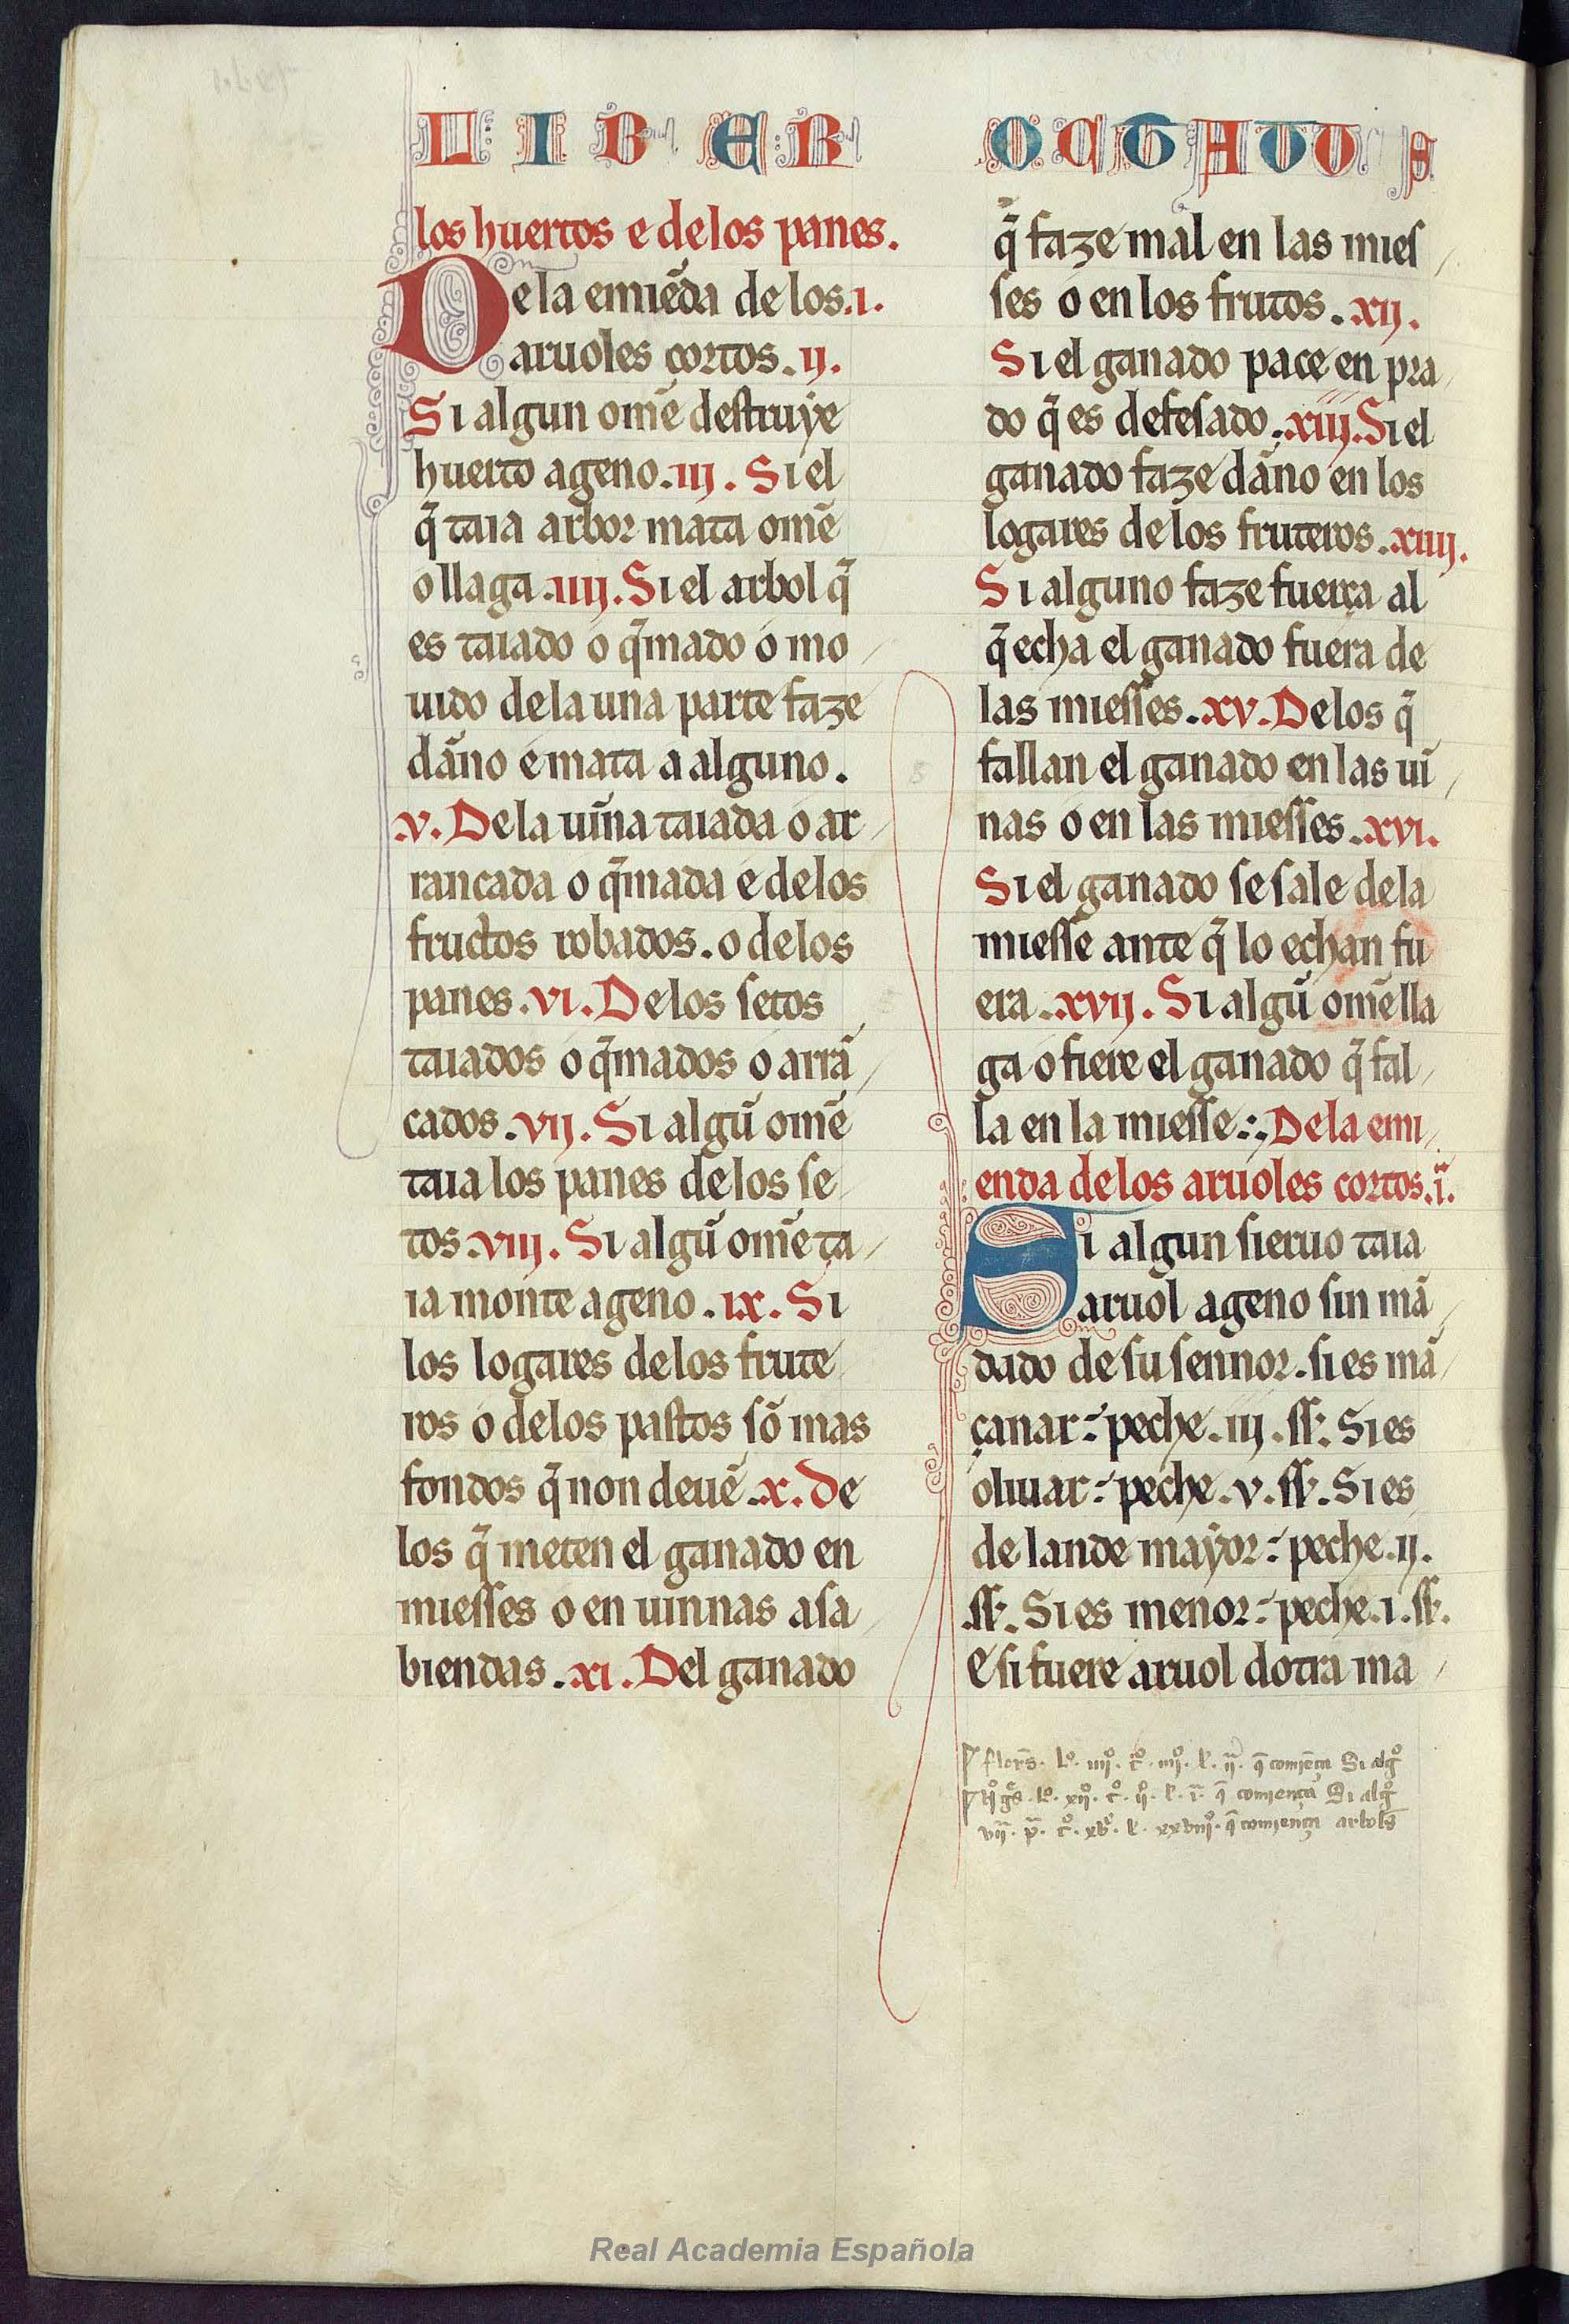 LIBER OCTAUUS
los huertos e delos panes.
De la emiẽda de los .i.
aruoles cortos. ij.
Si algun omẽ destruẏe
huerto ageno. iij. Si el
q̃ taia arbor mata omẽ
o llaga. iiij. Si el arbol q̃
es taiado o q̃mado o mo
uido de la una parte faze
dãno e mata a alguno.
v. De la uĩna taiada o ar
rancada o q̃mada e de los
fructos robados. o de los
panes. vi. De los setos
taiados o q̃mados o arrã
cados. vij. Si algũ omẽ
taia los panes de los se
tos. viij. Si algũ omẽ ta
ia monte ageno. ix. Si
los logares de los frute
ros o de los pastos sõ mas
fondos q̃ non deuẽ. x. De
los q̃ meten el ganado en
miesses o en uinnas a sa
biendas. xi. Del ganado
q̃ faze mal en las mies
ses o en los frutos. xij.
Si el ganado pace en pra
do q̃ es defesado. xiij. Si el
ganado faze dãno en los
logares de los fruteros. xiiij.
Si alguno faze fuerça al
q̃ echa el ganado fuera de
las miesses. xv. De los q̃
fallan el ganado en las uĩ
nas o en las miesses. xvi.
Si el ganado se sale de la
miesse ante q̃ lo echan fu
era. xvij. Si algũ omẽ lla
ga o fiere el ganado q̃ fal
la en la miesse:. De la emi
enda de los aruoles cortos. i.
Si algun sieruo taia
aruol ageno sin mã
dado de su sennor. si es mã
çanar: peche. iij. ss. Si es
oliuar: peche. v. ss. Si es
de lande mayor: peche. ij.
ss. Si es menor: peche. i. ss.
E si fuere aruol dotra ma
q̃ comiẽça Si algº
q̃ comiença Si algº
q̃ comiença arbols
Real Academia Española